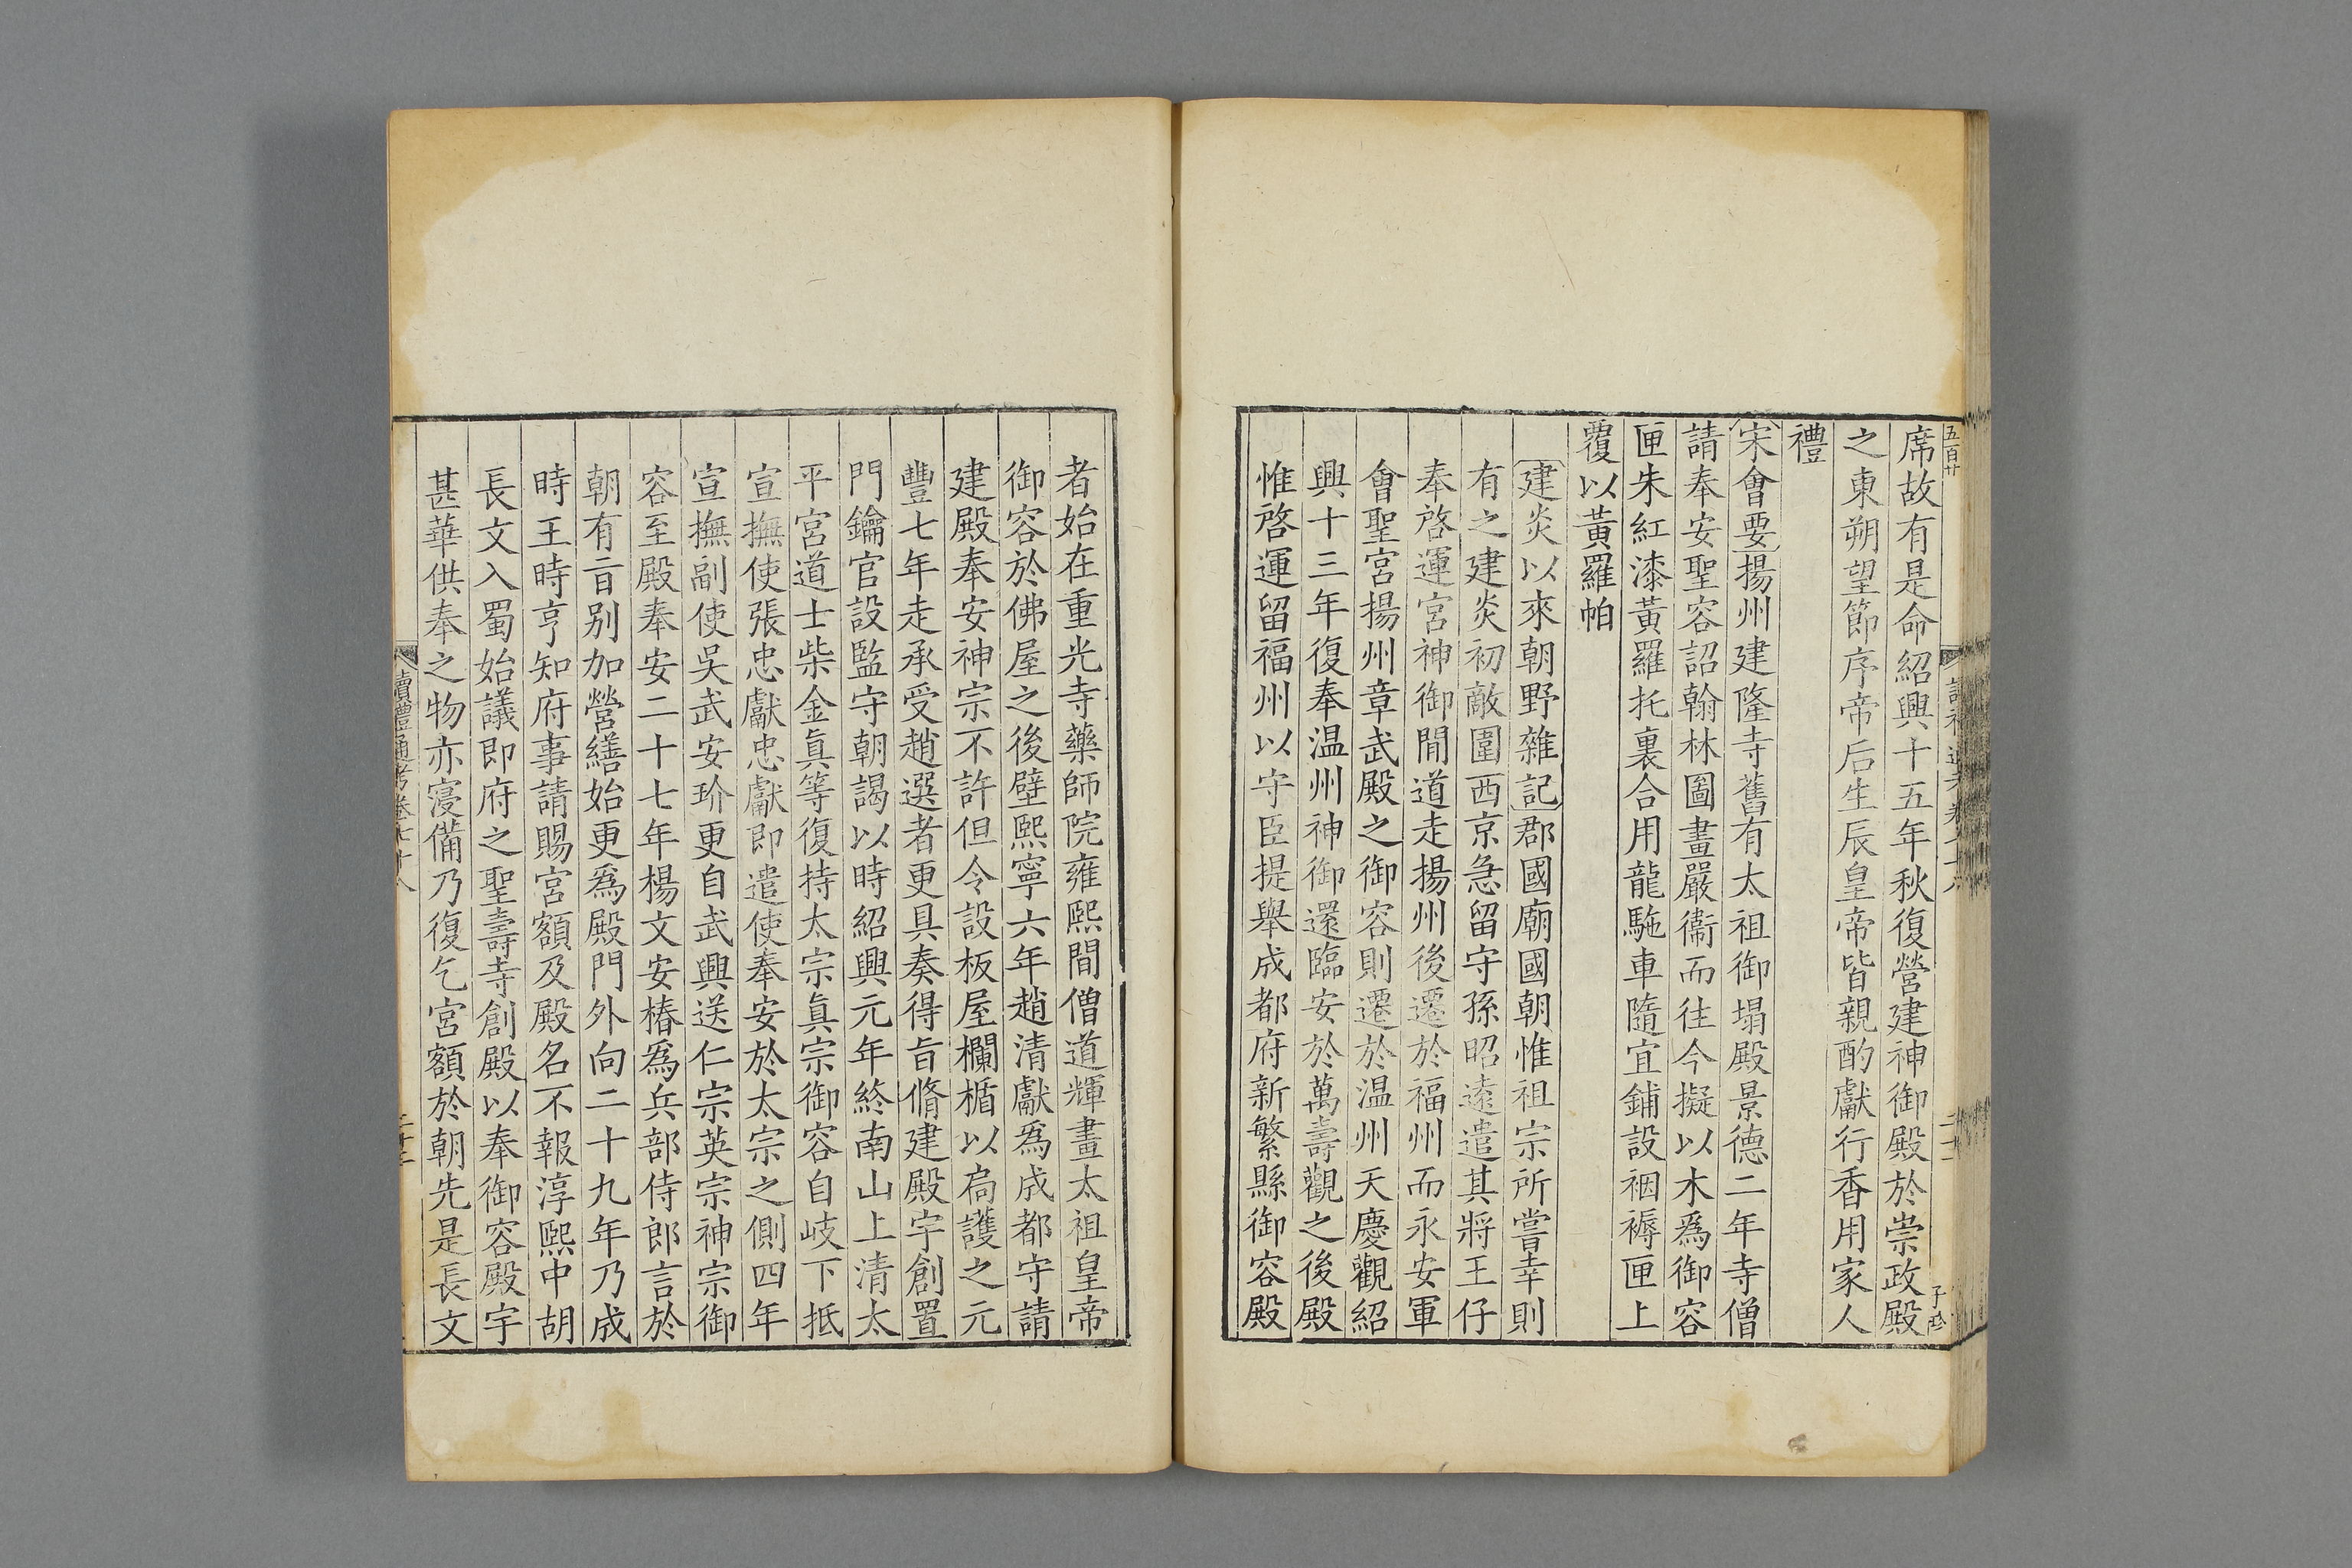 五百廿
席故有是命紹興十五年秋復營建神御殿於崇政殿
之東朔望節序帝后生辰皇帝皆親酌獻行香用家人
禮
宋會要揚州建隆寺舊有太祖御塌殿景德二年寺僧
請奉安聖容詔翰林圖畫嚴衞而往今擬以木爲御容
匣朱紅漆黃羅托裏合用龍駞車隨宜鋪設裀褥匣上
覆以黃羅帕
建炎以來朝野雜記郡國廟國朝惟祖宗所嘗幸則
有之建炎初敵圍西京急留守孫昭逺遣其將王仔
奉啓運宮神御閒道走揚州後遷於福州而永安軍
會聖宮揚州章武殿之御容則遷於温州天慶觀紹
興十三年復奉温州神御還臨安於萬壽觀之後殿
惟啓運留福州以守臣提舉成都府新繁縣御容殿
者始在重光寺藥師院雍熙間僧道輝畫太祖皇帝
御容於佛屋之後壁熙寧六年趙清獻爲成都守請
建殿奉安神宗不許但令設板屋欄楯以扃護之元
豐七年走承受趙選者更具奏得旨脩建殿宇創置
門鑰官設監守朝謁以時紹興元年終南山上清太
平宮道士柴金眞等復持太宗眞宗御容自岐下抵
宣撫使張忠獻忠獻即遣使奉安於太宗之側四年
宣撫副使吳武安玠更自武興送仁宗英宗神宗御
容至殿奉安二十七年楊文安椿爲兵部侍郎言於
朝有旨别加營繕始更爲殿門外向二十九年乃成
時王時亨知府事請賜宮額及殿名不報淳熙中胡
長文入蜀始議即府之聖壽寺創殿以奉御容殿宇
甚華供奉之物亦寖備乃復乞宮額於朝先是長文
讀禮通考卷七十八